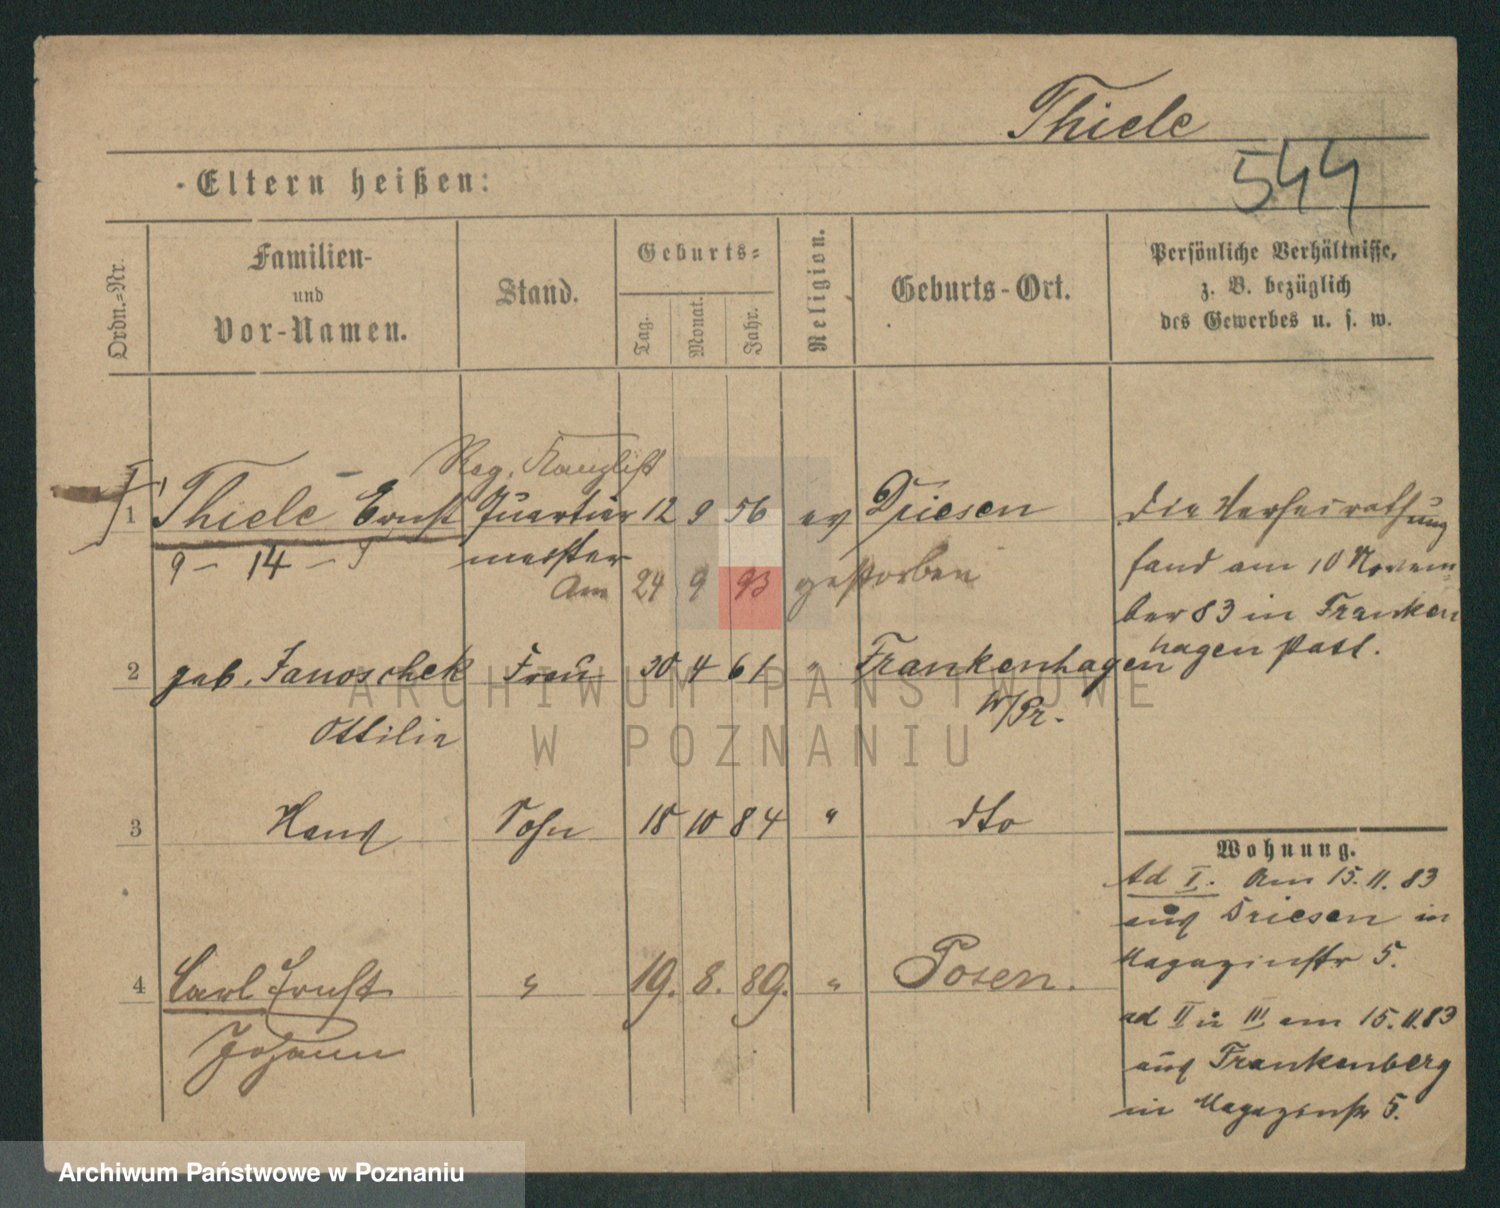 Thiele
544
Eltern heißen:
Ordn.-Nr.
Familien-
und
Vor-Namen.
Stand.
Geburts-
Tag.
Monat.
Jahr.
Religion.
Geburts-Ort.
Persönliche Verhältnisse,
z. B. bezüglich
des Gewerbes u. s. w.
Reg. Kanzlist
1 Thiele Ernst Quartier 12 9 56 ev Driesen
9 - 14 - meister
Am 24 9 93 gestorben
Die Verheirathung
fand am 10 Novem-
ber 83 in Franken
hagen statt.
2 geb. Janoschek Frau 30 4 61 " Frankenhagen
Ottilie W/Pr.
3 Hans Sohn 18 10 84 " dto
4 Carl Ernst " 19. 8. 89. " Posen.
Johann
Wohnung.
Ad I. Am 15. 11. 83
aus Driesen in
Magazinstr 5.
ad II u III am 15. 11. 83
aus Frankenberg
in Magazinstr 5.
ARCHIWUM PAŃSTWOWE
W POZNANIU
Archiwum Państwowe w Poznaniu